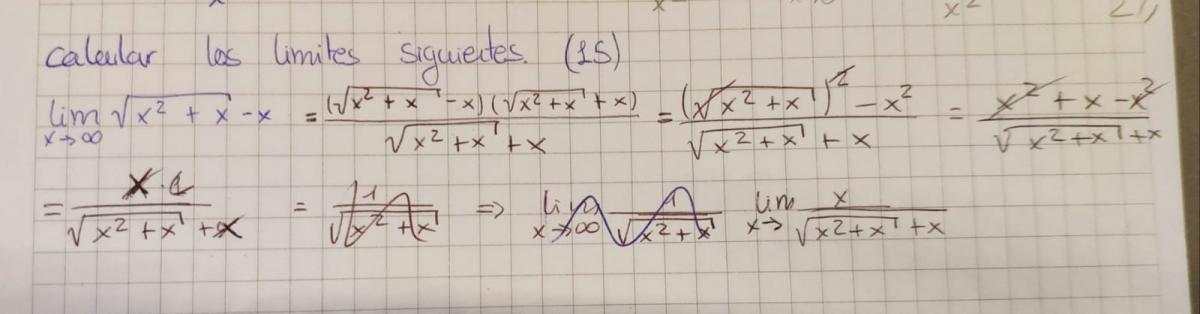 calcular los limites siguientes. (15)
lim x→∞ √(x² + x) - x = (√(x² + x) - x)(√(x² + x) + x) / (√(x² + x) + x) = (√(x² + x))² - x² / (√(x² + x) + x) = x² + x - x² / (√(x² + x) + x)
= x · 1 / (√(x² + x) + x) = 1 / √(x² + x) ⇒ lim x→∞ 1 / √(x² + x) lim x→ x / (√(x² + x) + x)